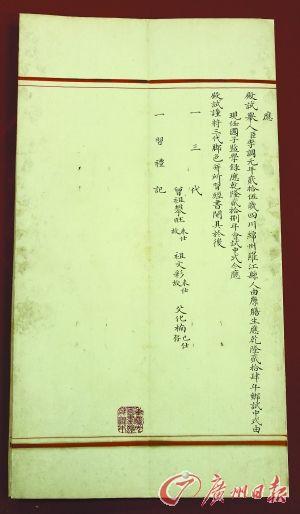 應
殿試舉人臣李調元年貳拾伍歲四川綿州羅江縣人由廩膳生應乾隆貳拾肆年鄉試中式由
現任國子監學錄應乾隆貳拾捌年會試中式今應
殿試謹將三代腳色并所習經書開具於後
一 三 代
曾祖攀旺未仕故 祖文彩未仕故 父化楠已仕存
一 習禮記
廣州日報